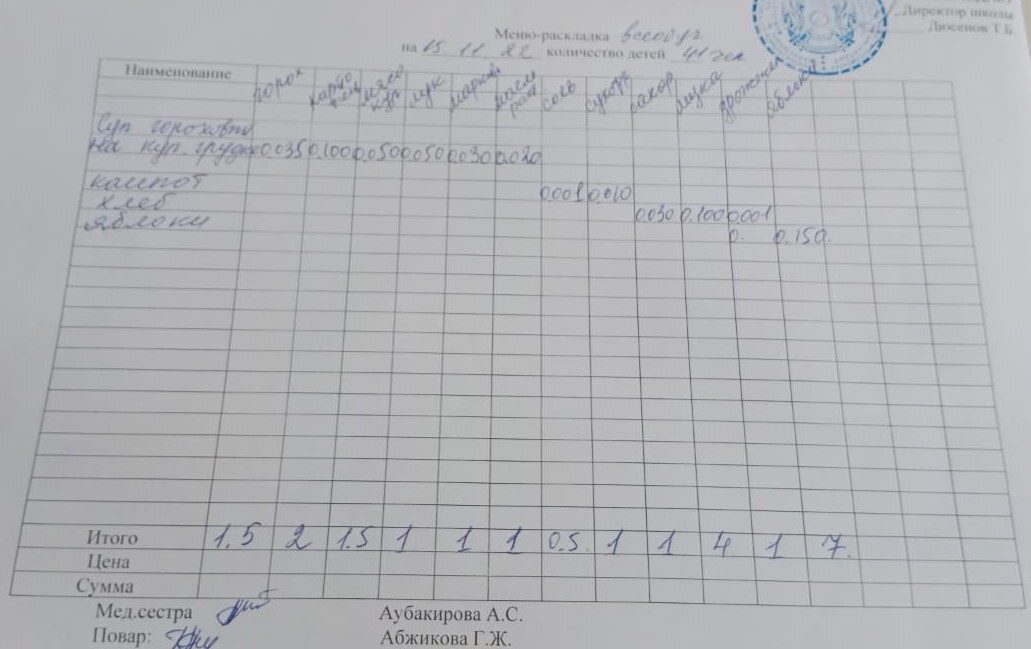 Директор школы
Дюсенов Т.Б.
Меню-раскладка всеобуч
на 15 11 22 количество детей 41 чел
Наименование горох карто мясо кур лук марковь масло раст соль сухофр сахар мука дрожжи яблоки
Суп гороховый
на кур. грудке 0.035 0.100 0.050 0.050 0.030 0.020
компот 0.001 0.010
хлеб 0.030 0.100 0.001
яблоки 0. 0.150.
Итого 1.5 2 1.5 1 1 1 0.5 1 1 4 1 7.
Цена
Сумма
Мед.сестра Аубакирова А.С.
Повар: Абжикова Г.Ж.